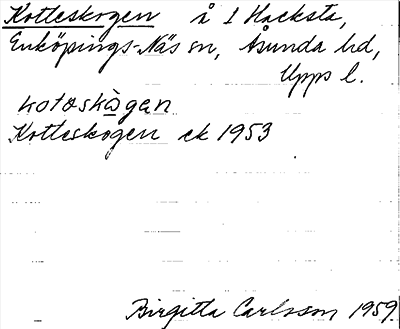 Kotteskogen å 1 Hacksta,
Enköpings-Näs sn, Åsunda hd,
Upps l.
kotəskògən
Kotteskogen ek 1953
Birgitta Carlsson 1959.